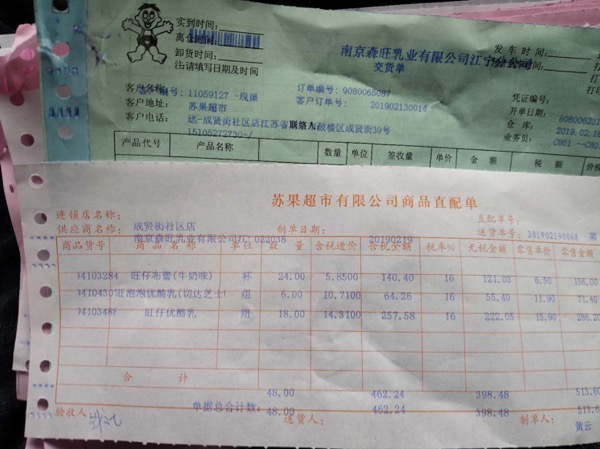 实到时间:
离仓时间:
卸货时间:
注请填写日期及时间
南京森旺乳业有限公司江宁分公司
交货单
发车时间:
凭证编号:
开单日期:
仓库: 2019.02.18
业务员:
客户编号: 11059127 -现操
订单编号: 9080065087
客户地址: 苏果超市
客户订单号: 201902130014
客户电话: 送-成贤街社区店江苏省 鼓楼区成贤街39号
15105272730-/
产品代号 产品名称 数量 单位 签收量 单价 金额 税额
苏果超市有限公司商品直配单
连锁店名称: 成贤街社区店
直配单号:
供应商名称: 南京森旺乳业有限公司江 022038 制单日期: 20190219
送货单号: 201902190068 第
商品货号 商品名称 单位 数量 含税进价 含税金额 税率% 无税金额 零售单价 零售金额
14103284 旺仔布蕾(牛奶味) 杯 24.00 5.8500 140.40 16 121.03 6.50 156.00
旺泡泡优酪乳(切达芝士) 组 6.00 10.7100 64.26 16 55.40 11.90 71.40
14103485 旺仔优酪乳 组 18.00 14.3100 257.58 16 222.05 15.90 286.20
合计 48.00 462.24 398.48 513.60
单据总合计数: 48.00 462.24 398.48 513.60
验收人: 送货人: 制单人:
黄云